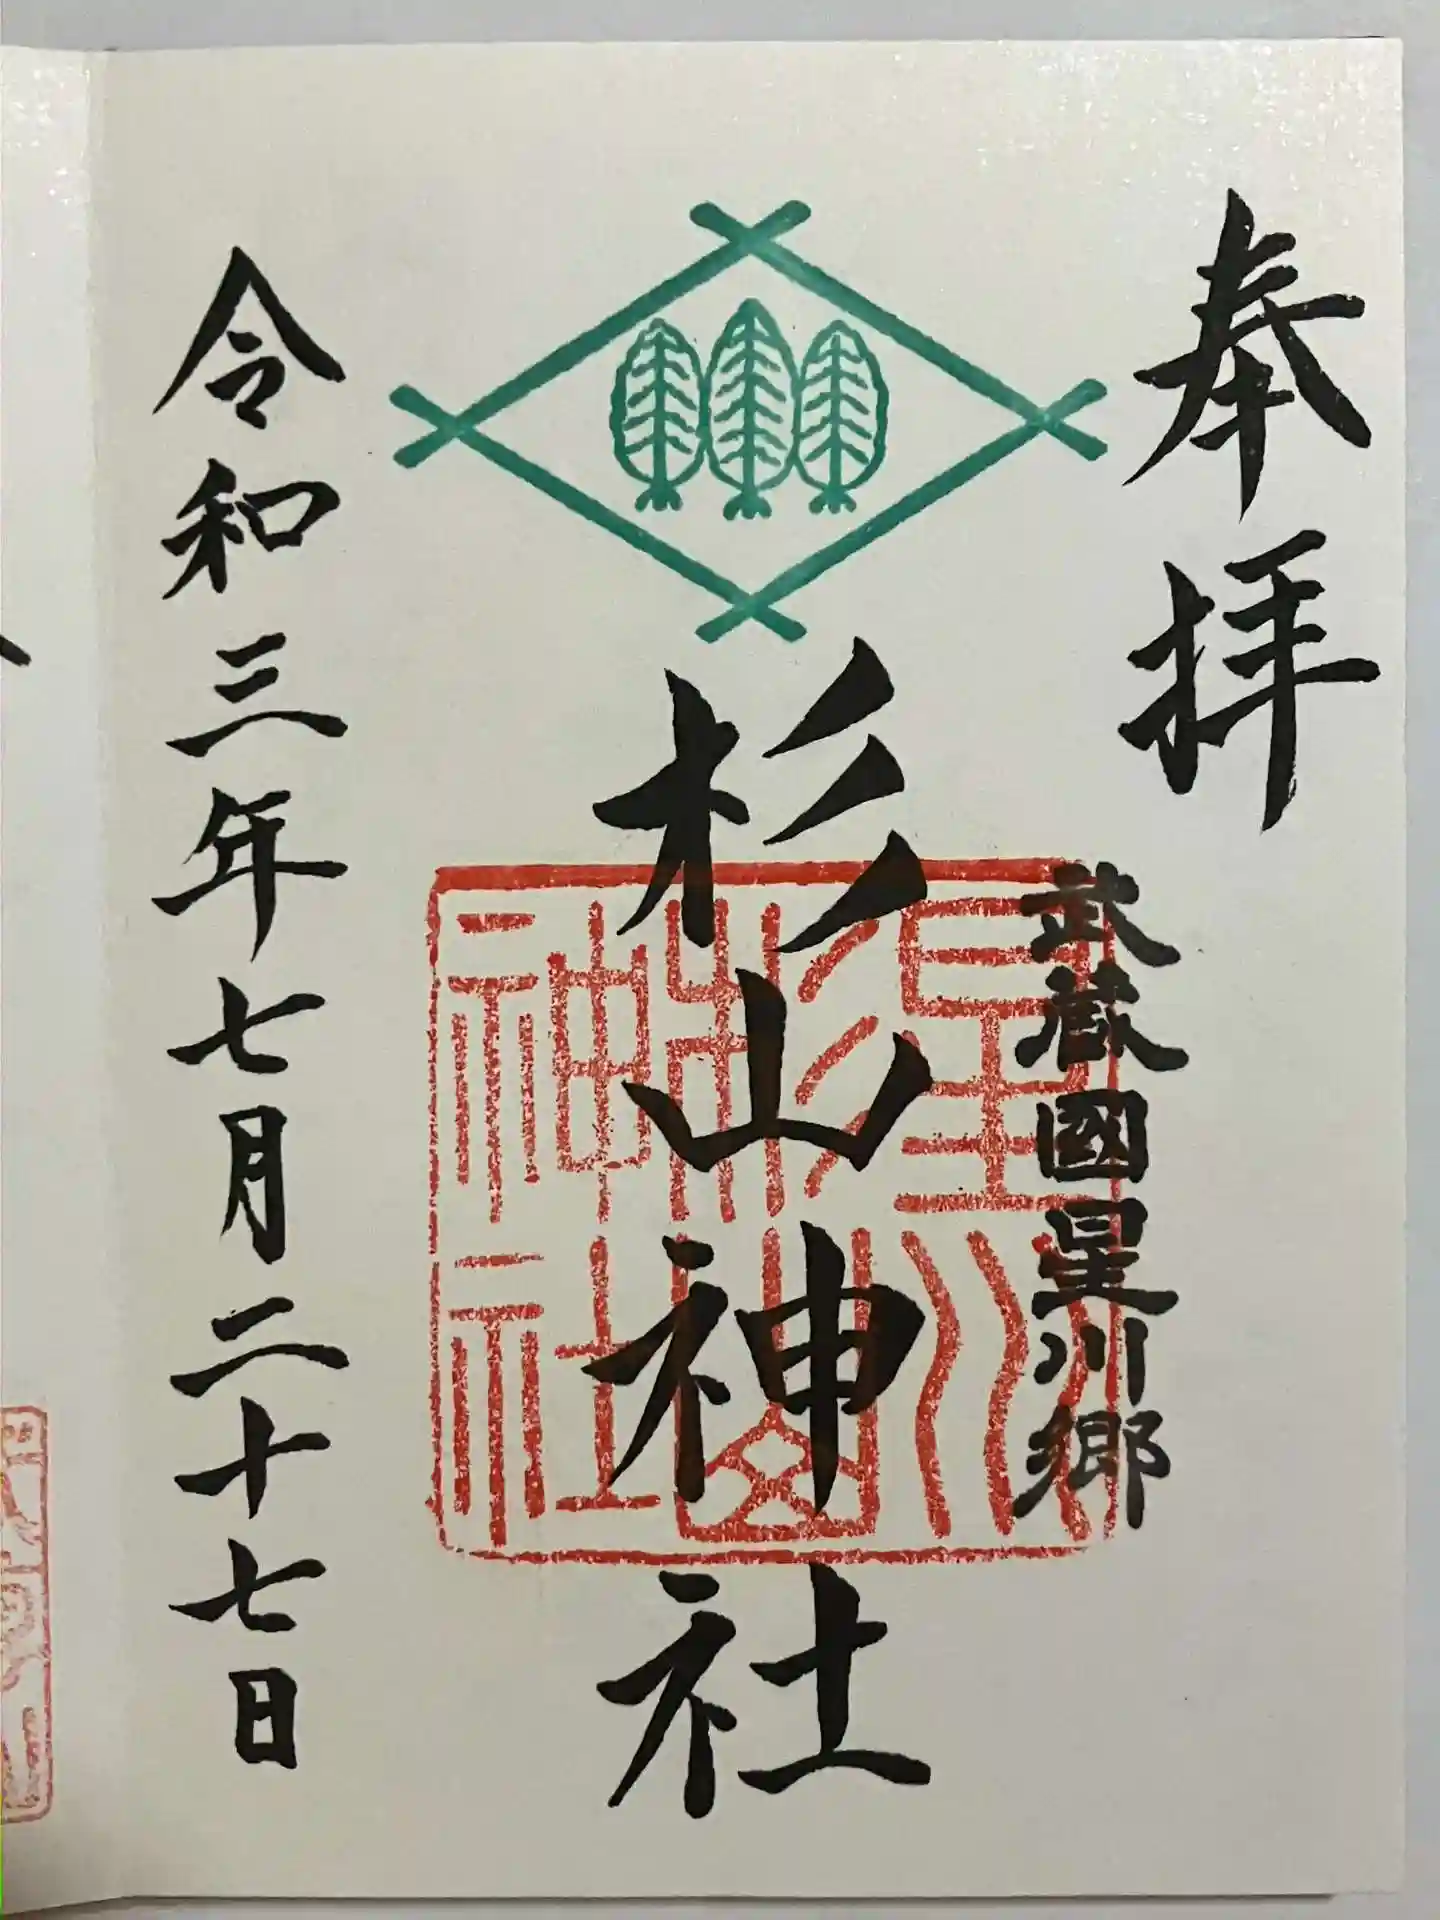 奉拝
武蔵國星川郷
杉山神社
星川
杉山
神社
令和三年七月二十七日